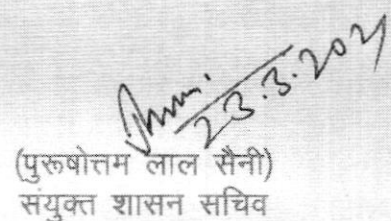 23.3.2021
(पुरूषोत्तम लाल सैनी)
संयुक्त शासन सचिव